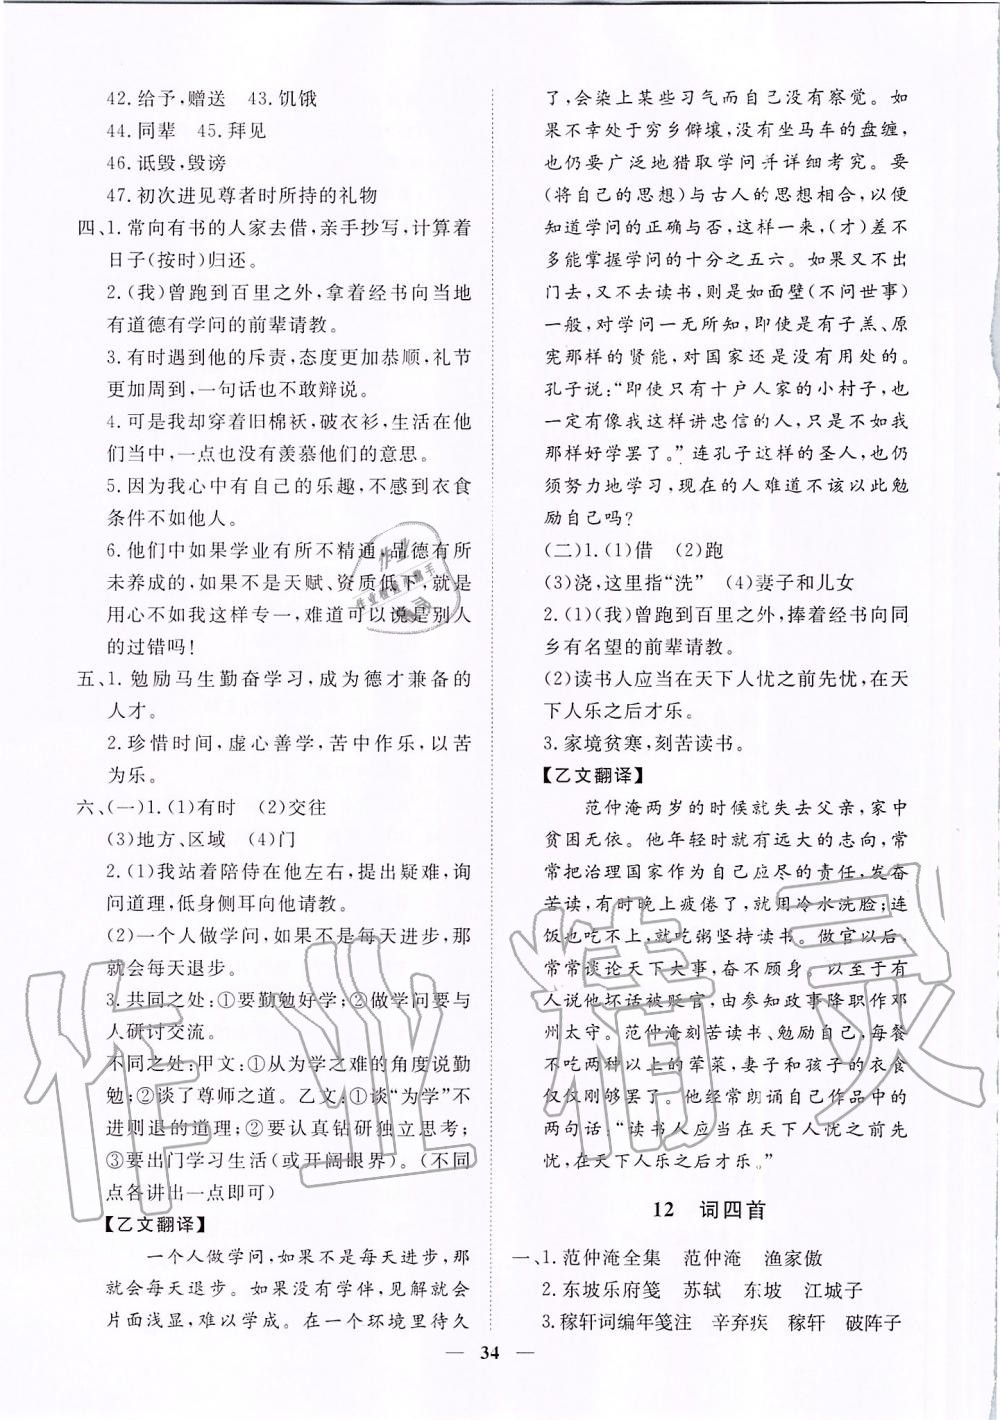 42.给予,赠送　43.饥饿
44.同辈　45.拜见
46.诋毁,毁谤
47.初次进见尊者时所持的礼物
四、1.常向有书的人家去借,亲手抄写,计算着
日子(按时)归还。
2.(我)曾跑到百里之外,拿着经书向当地
有道德有学问的前辈请教。
3.有时遇到他的斥责,态度更加恭顺,礼节
更加周到,一句话也不敢辩说。
4.可是我却穿着旧棉袄,破衣衫,生活在他
们当中,一点也没有羡慕他们的意思。
5.因为我心中有自己的乐趣,不感到衣食
条件不如他人。
6.他们中如果学业有所不精通,品德有所
未养成的,如果不是天赋、资质低下,就是
用心不如我这样专一,难道可以说是别人
的过错吗!
五、1.勉励马生勤奋学习,成为德才兼备的
人才。
2.珍惜时间,虚心善学,苦中作乐,以苦
为乐。
六、(一)1.(1)有时　(2)交往
(3)地方、区域　(4)门
2.(1)我站着陪侍在他左右,提出疑难,询
问道理,低身侧耳向他请教。
(2)一个人做学问,如果不是每天进步,那
就会每天退步。
3.共同之处:①要勤勉好学;②做学问要与
人研讨交流。
不同之处:甲文:①从为学之难的角度说勤
勉;②谈了尊师之道。乙文:①谈“为学”不
进则退的道理;②要认真钻研独立思考;
③要出门学习生活(或开阔眼界)。(不同
点各讲出一点即可)
【乙文翻译】
一个人做学问,如果不是每天进步,那
就会每天退步。如果没有学伴,见解就会
片面浅显,难以学成。在一个环境里待久
了,会染上某些习气而自己没有察觉。如
果不幸处于穷乡僻壤,没有坐马车的盘缠,
也仍要广泛地猎取学问并详细考究。要
(将自己的思想)与古人的思想相合,以便
知道学问的正确与否,这样一来,(才)差不
多能掌握学问的十分之五六。如果又不出
门去,又不去读书,则是如面壁(不问世事)
一般,对学问一无所知,即使是有子羔、原
宪那样的贤能,对国家还是没有用处的。
孔子说:“即使只有十户人家的小村子,也
一定有像我这样讲忠信的人,只是不像我
那样好学罢了。”连孔子这样的圣人,也仍
须努力地学习,现在的人难道不该以此勉
励自己吗?
(二)1.(1)借　(2)跑
(3)浇,这里指“洗”　(4)妻子和儿女
2.(1)(我)曾跑到百里之外,捧着经书向同
乡有名望的前辈请教。
(2)读书人应当在天下人忧之前先忧,在天
下人乐之后才乐。
3.家境贫寒,刻苦读书。
【乙文翻译】
范仲淹两岁的时候就失去父亲,家中
贫困无依。他年轻时就有远大的志向,常
常把治理国家作为自己应尽的责任,发奋
苦读,有时晚上疲倦了,就用冷水洗脸;连
饭也吃不上,就吃粥坚持读书。做官以后,
常常谈论天下大事,奋不顾身。以至于有
人说他坏话被贬官,由参知政事降职作邓
州太守。范仲淹刻苦读书、勉励自己,每餐
不吃两种以上的荤菜,妻子和孩子的衣食
仅仅刚够罢了。他经常朗诵自己作品中的
两句话:“读书人应当在天下人忧之前先
忧,在天下人乐之后才乐。”
12　词四首
一、1.范仲淹全集　范仲淹　渔家傲
2.东坡乐府笺　苏轼　东坡　江城子
3.稼轩词编年笺注　辛弃疾　稼轩　破阵子
— 34 —
作业精灵